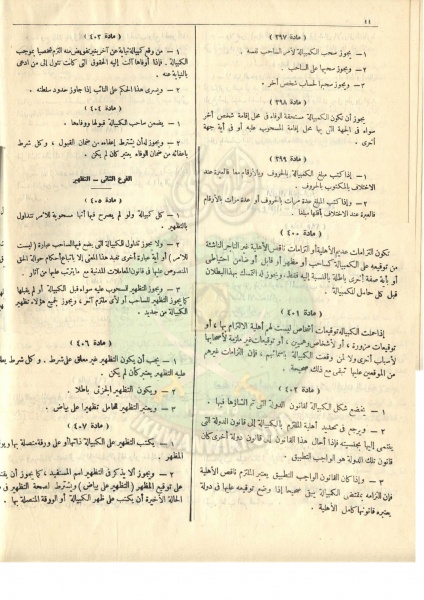 ١١
( مادة ٣٩٧ )
١ – يجوز سحب الكمبيالة لأمر الساحب نفسه .
٢ – ويجوز سحبها على الساحب .
٣ – ويجوز سحبها لحساب شخص آخر
( مادة ٣٩٨ )
يجوز أن تكون الكمبيالة مستحقة الوفاء فى محل إقامة شخص آخر
سواء فى الجهة التى بها محل إقامة المسحوب عليه أو فى أية جهة
أخرى .
( مادة ٣٩٩ )
١ – إذا كتب مبلغ الكمبيالة بالحروف وبالأرقام معا فالعبرة عند
الاختلاف بالمكتوب بالحروف .
٢ – وإذا كتب المبلغ عدة مرات بالحروف أو عدة مرات بالأرقام
فالعبرة عند الاختلاف بأقلها مبلغا .
( مادة ٤٠٠ )
تكون التزامات عديم الأهلية أو التزامات ناقص الأهلية غير التاجر الناشئة
من توقيعه على الكمبيالة كساحب أو مظهر أو قابل أو ضامن احتياطى
أو بأية صفة أخرى باطلة بالنسبة إليه فقط، ويجوز له التمسك بهذا البطلان
قبل كل حامل للكمبيالة .
( مادة ٤٠١ )
إذا حملت الكمبيالة توقيعات أشخاص ليست لهم أهلية الالتزام بها ، أو
توقيعات مزورة ، أو لأشخاص وهميين ، أو توقيعات غير ملزمة لأصحابها
لأسباب أخرى ولا لمن وقعت الكمبيالة بأسمائهم ، فإن التزامات غيرهم
من الموقعين عليها تبقى مع ذلك صحيحة .
( مادة ٤٠٢ )
١ – يخضع شكل الكمبيالة لقانون الدولة التى تم إنشاؤها فيها .
٢ – ويرجع فى تحديد أهلية الملتزم بالكمبيالة إلى قانون الدولة التى
ينتمى إليها بجنسيته فإذا أحال هذا القانون إلى قانون دولة أخرى كان
قانون تلك الدولة هو الواجب التطبيق .
٣ – وإذا كان القانون الواجب التطبيق يعتبر الملتزم ناقص الأهلية
فإن التزامه بمقتضى الكمبيالة يبقى صحيحا إذا وضع توقيعه عليها فى دولة
يعتبره قانونها كامل الأهلية .
( مادة ٤٠٣ )
١ – من وقع كمبيالة نيابة عن آخر بغير تفويض منه التزم شخصيا بموجب
الكمبيالة . فإذا أوفاها آلت إليه الحقوق التى كانت تئول إلى من ادعى
بالنيابة عنه .
٢ – ويسرى هذا الحكم على النائب إذا جاوز حدود سلطته .
( مادة ٤٠٤ )
١ – يضمن ساحب الكمبيالة قبولها ووفاءها .
٢ – ويجوز له أن يشترط إعفاءه من ضمان القبول ، وكل شرط
بإعفائه من ضمان الوفاء يعتبر كأن لم يكن .
الفرع الثانى – التظهير
( مادة ٤٠٥ )
١ – كل كمبيالة ولو لم يصرح فيها أنها مسحوبة للأمر تتداول
بالتظهير .
٢ – ولا يجوز تداول الكمبيالة التى يضع فيها الساحب عبارة (ليست
للأمر) أو أية عبارة أخرى تفيد هذا المعنى إلا باتباع أحكام حوالة الحق
المنصوص عليها فى قانون المعاملات المدنية مع ما يترتب عليها من آثار .
٣ – ويجوز التظهير للمسحوب عليه سواء قبل الكمبيالة أو لم يقبلها
كما يجوز التظهير للساحب أو لأى ملتزم آخر ، ويجوز لجميع هؤلاء تظهير
الكمبيالة من جديد .
( مادة ٤٠٦ )
١ – يجب أن يكون التظهير غير معلق على شرط . وكل شرط يعلق
عليه التظهير يعتبر كأن لم يكن .
٢ – ويكون التظهير الجزئى باطلا .
٣ – ويعتبر التظهير للحامل تظهيرا على بياض .
( مادة ٤٠٧ )
١ – يكتب التظهير على الكمبيالة ذاتها أو على ورقة متصلة بها
المظهر .
٢ – ويجوز ألا يذكر فى التظهير اسم المستفيد ، كما يجوز أن
على توقيع المظهر (التظهير على بياض) ويشترط لصحة التظهير فى
الحالة الأخيرة أن يكتب على ظهر الكمبيالة أو الورقة المتصلة بها .
IKHWANWIKI